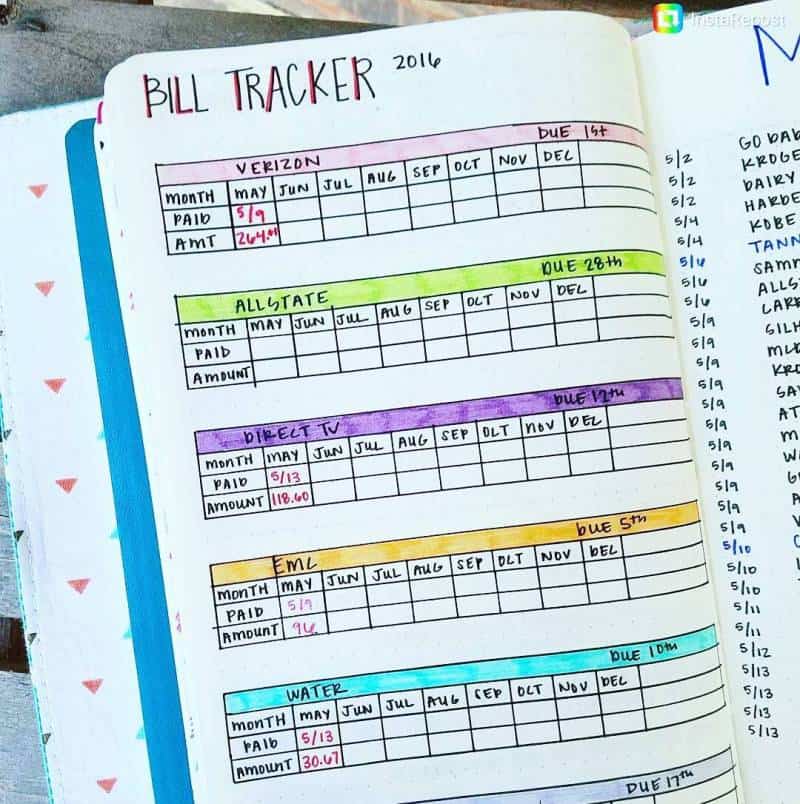 InstaRepost
BILL TRACKER 2016
VERIZON DUE 1st
MONTH MAY JUN JUL AUG SEP OCT NOV DEC
PAID 5/9
AMT
ALLSTATE DUE 28th
MONTH MAY JUN JUL AUG SEP OCT NOV DEC
PAID
AMOUNT
DIRECT TV DUE 12th
MONTH MAY JUN JUL AUG SEP OCT NOV DEC
PAID 5/13
AMOUNT 118.60
EMC DUE 5th
MONTH MAY JUN JUL AUG SEP OCT NOV DEC
PAID 5/9
AMOUNT 96
WATER DUE 10th
MONTH MAY JUN JUL AUG SEP OCT NOV DEC
PAID 5/13
AMOUNT 30.67
DUE 17th
M
5/2 GO DAD
5/2 KROGE
5/2 DAIRY
5/4 HARDE
5/4 KOBE
5/6 TANN
5/6 SAM
5/6 ALLS
5/9
5/9 SILH
5/9
5/9 KRO
5/9
5/9
5/9
5/9
5/9
5/9
5/10
5/10
5/10
5/11
5/11
5/12
5/13
5/13
5/13
5/13